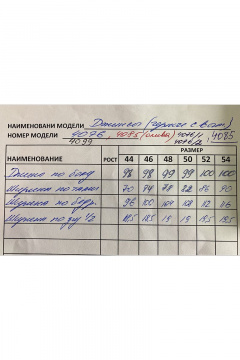 НАИМЕНОВАНИ МОДЕЛИ Джинсы
НОМЕР МОДЕЛИ 4076, 4085 (олива) 4076/1 4085
4099 4076/2
РАЗМЕР
НАИМЕНОВАНИЕ РОСТ 44 46 48 50 52 54
Длина по боку 98 98 99 99 100 100
Ширина по талии 70 74 78 82 86 90
Ширина по бедр. 96 100 104 108 112 116
Ширина по низу 1/2 18,5 19 19,5